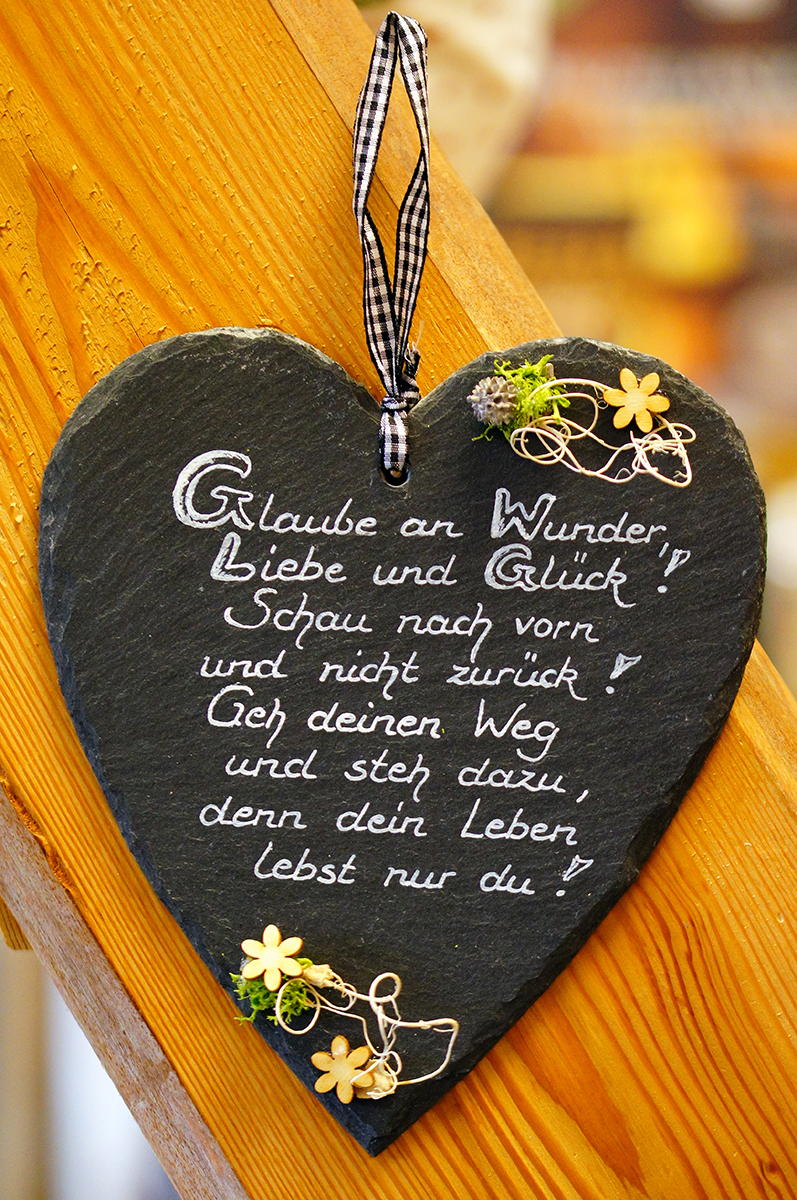 Glaube an Wunder,
Liebe und Glück!
Schau nach vorn
und nicht zurück!
Geh deinen Weg
und steh dazu,
denn dein Leben
lebst nur du!